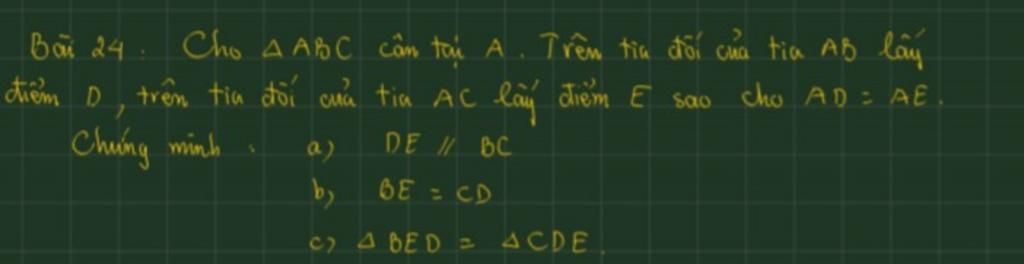 Bài 24 : Cho △ABC cân tại A. Trên tia đối của tia AB lấy
điểm D, trên tia đối của tia AC lấy điểm E sao cho AD = AE.
Chứng minh : a) DE // BC
b) BE = CD
c) △BED = △CDE.